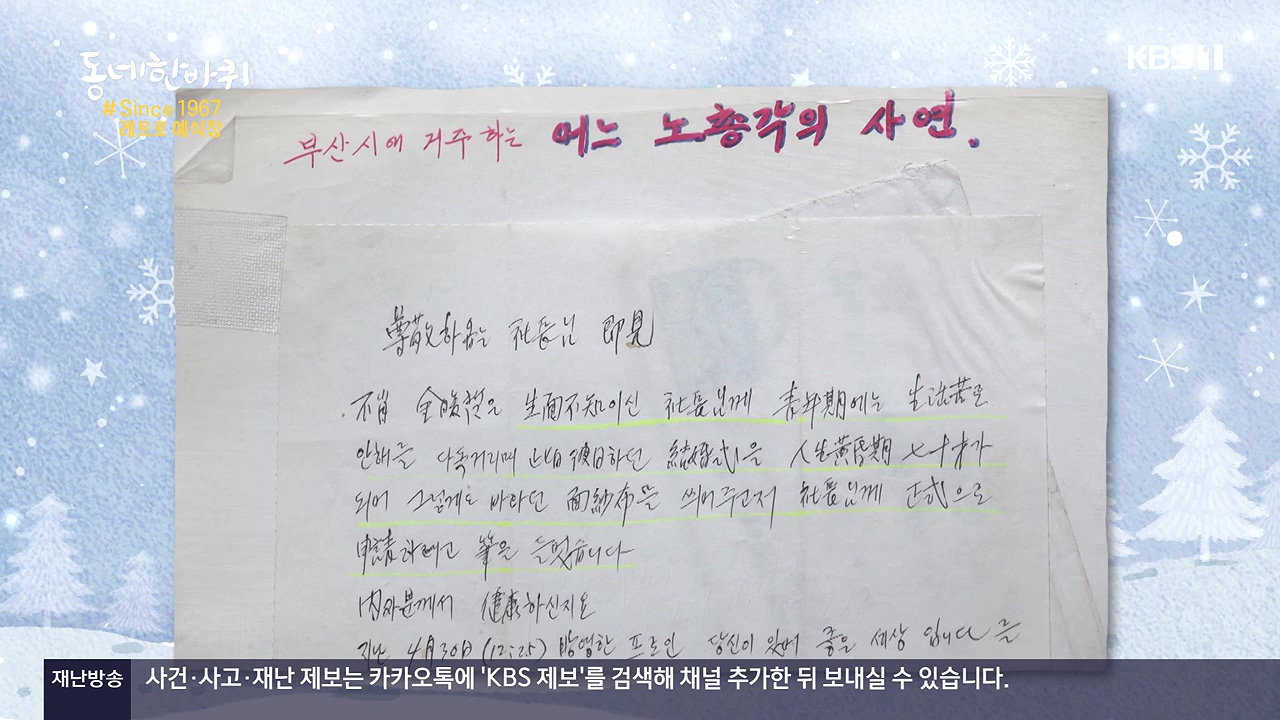 동네한바퀴
#Since 1967
레트로 예식장
KBS 1
부산시에 거주하는 어느 노총각의 사연.
尊敬하옵는 社長님 即見
不肖 生面不知이신 社長님께 靑年期에는 生活苦로
안해를 다독거리며 하던 結婚式을 人生黃昏期 七十才가
되어 그렇게도 바라던 面紗布를 씌어주고저 社長님께 正式으로
申請하려고 筆을 들었습니다
內子분께서 健康하신지요
지난 4月30日(12:25) 방영한 프로인 당신이 있어 좋은 세상 입니다 를
재난방송 사건·사고·재난 제보는 카카오톡에 'KBS 제보'를 검색해 채널 추가한 뒤 보내실 수 있습니다.